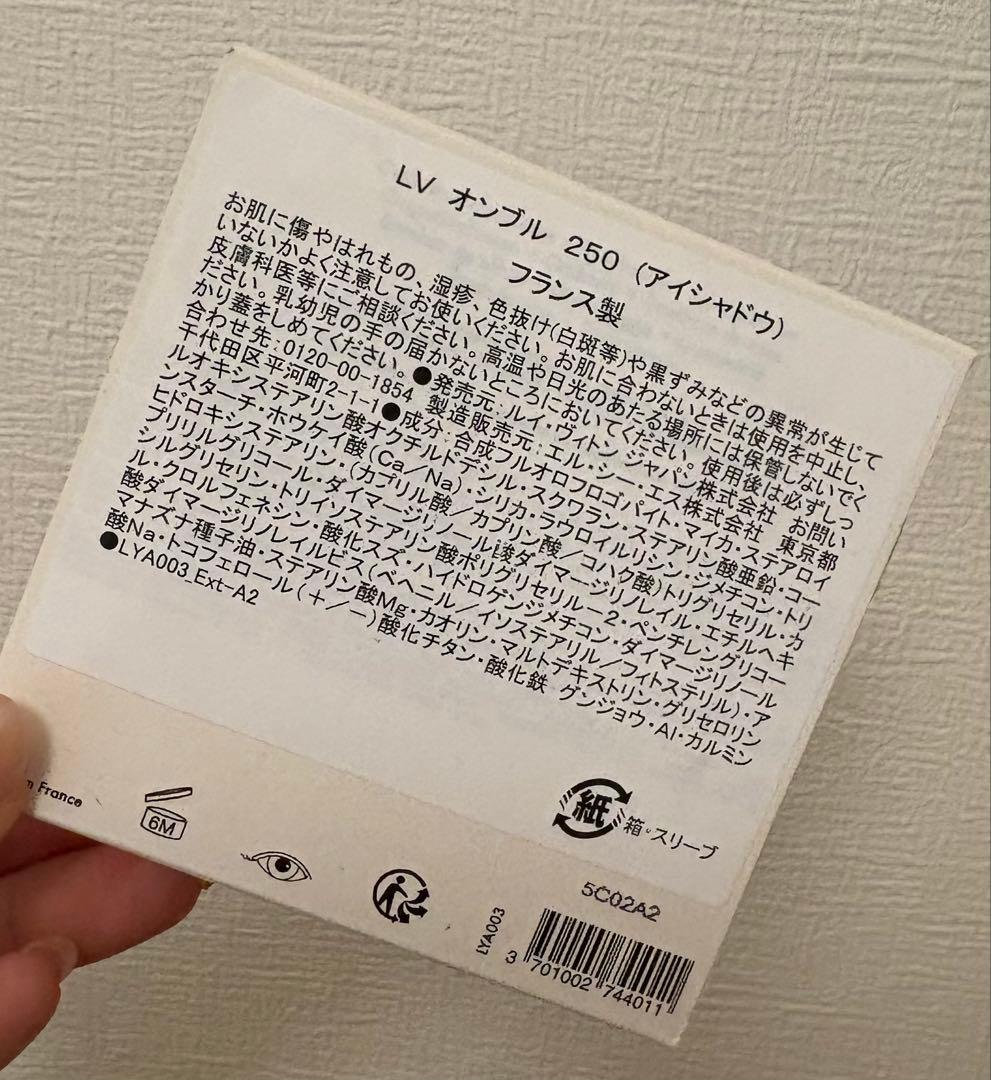 LV オンブル 250 (アイシャドウ)
フランス製
お肌に傷やはれもの、湿疹、色抜け(白斑等)や黒ずみなどの異常が生じて
いないかよく注意してお使いください。お肌に合わないときは使用を中止し、
皮膚科医等にご相談ください。高温や日光のあたる場所には保管しないでく
ださい。乳幼児の手の届かないところにおいてください。使用後は必ずしっ
かり蓋をしめてください。●発売元:ルイ・ヴィトン ジャパン株式会社 お問い
合わせ先:0120-00-1854 製造販売元:エル・シー・エス株式会社 東京都
千代田区平河町2-1-1●成分:合成フルオロフロゴパイト・マイカ・ステアロイ
ルオキシステアリン酸オクチルドデシル・スクワラン・ステアリン酸亜鉛・コー
ンスターチ・ホウケイ酸(Ca/Na)・シリカ・ラウロイルリシン・ジメチコン・トリ
ヒドロキシステアリン・(カプリル酸/カプリン酸/コハク酸)トリグリセリル・カ
プリリルグリコール・ダイマージリノール酸ダイマージリノレイル・エチルヘキ
シルグリセリン・トリイソステアリン酸ポリグリセリル-2・ペンチレングリコー
ル・クロルフェネシン・酸化スズ・ハイドロゲンジメチコン・ダイマージリノール
酸ダイマージリノレイルビス(ベヘニル/イソステアリル/フィトステリル)・ア
マナズナ種子油・ステアリン酸Mg・カオリン・マルトデキストリン・グリセロリン
酸Na・トコフェロール(+/-)酸化チタン・酸化鉄 グンジョウ・Al・カルミン
●LYA003_Ext-A2
紙 箱・スリーブ
France
6M
5C02A2
LYA003
3 701002 744011